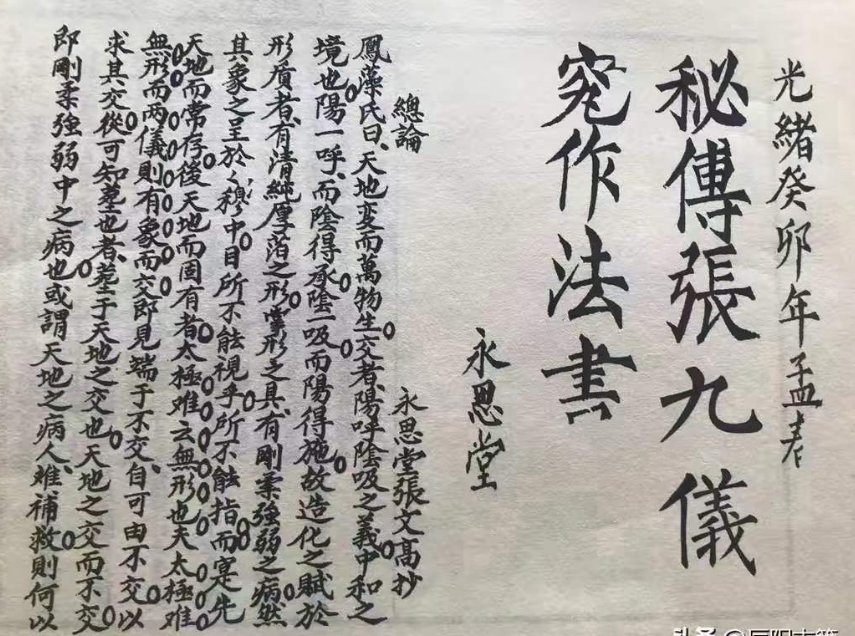 光緒癸卯年孟春
秘傳張九儀
穵作法書
永思堂
總論
永思堂張文高抄
鳳藻氏曰天地变而萬物生交者陽呼陰吸之義中和之
境也陽一呼而陰得承陰一吸而陽得施故造化之賦於
形质者有清純厚薄之形掌形之具有刚柔強弱之病然
其象之呈於穆中目所不能視手所不能指而寔先
天地而常存後天地而固有者太極难云無形也夫太極难
無形而两儀則有象而交即見端于不交自可由不交以
求其交從可知葬也者葬于天地之交也天地之交而不交
即剛柔強弱中之病也或謂天地之病人难補救則何以